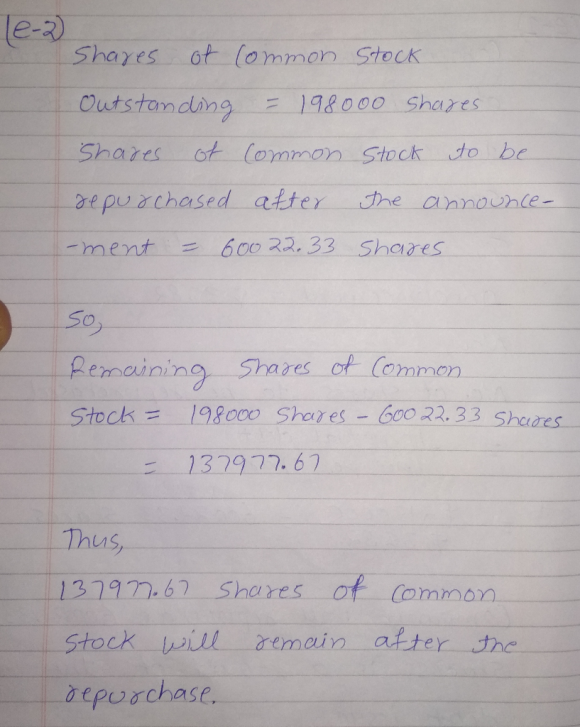 (e-2)
Shares of Common Stock
Outstanding = 198000 Shares
Shares of Common Stock to be
repurchased after the announce-
-ment = 60022.33 Shares
So,
Remaining Shares of Common
Stock = 198000 Shares - 60022.33 Shares
= 137977.67
Thus,
137977.67 Shares of Common
Stock will remain after the
repurchase.